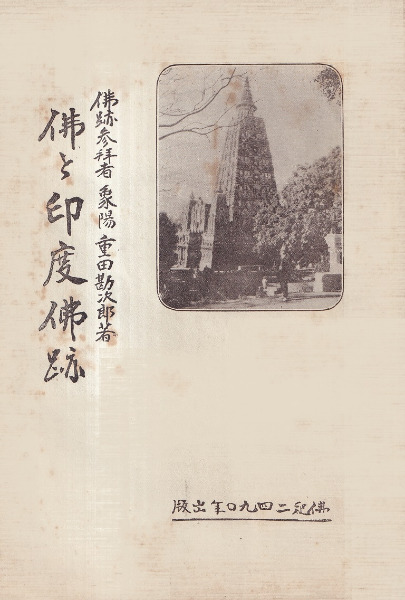 佛跡参拝者 象陽 重田勘次郎著
佛と印度佛跡
佛紀二四九〇年出版